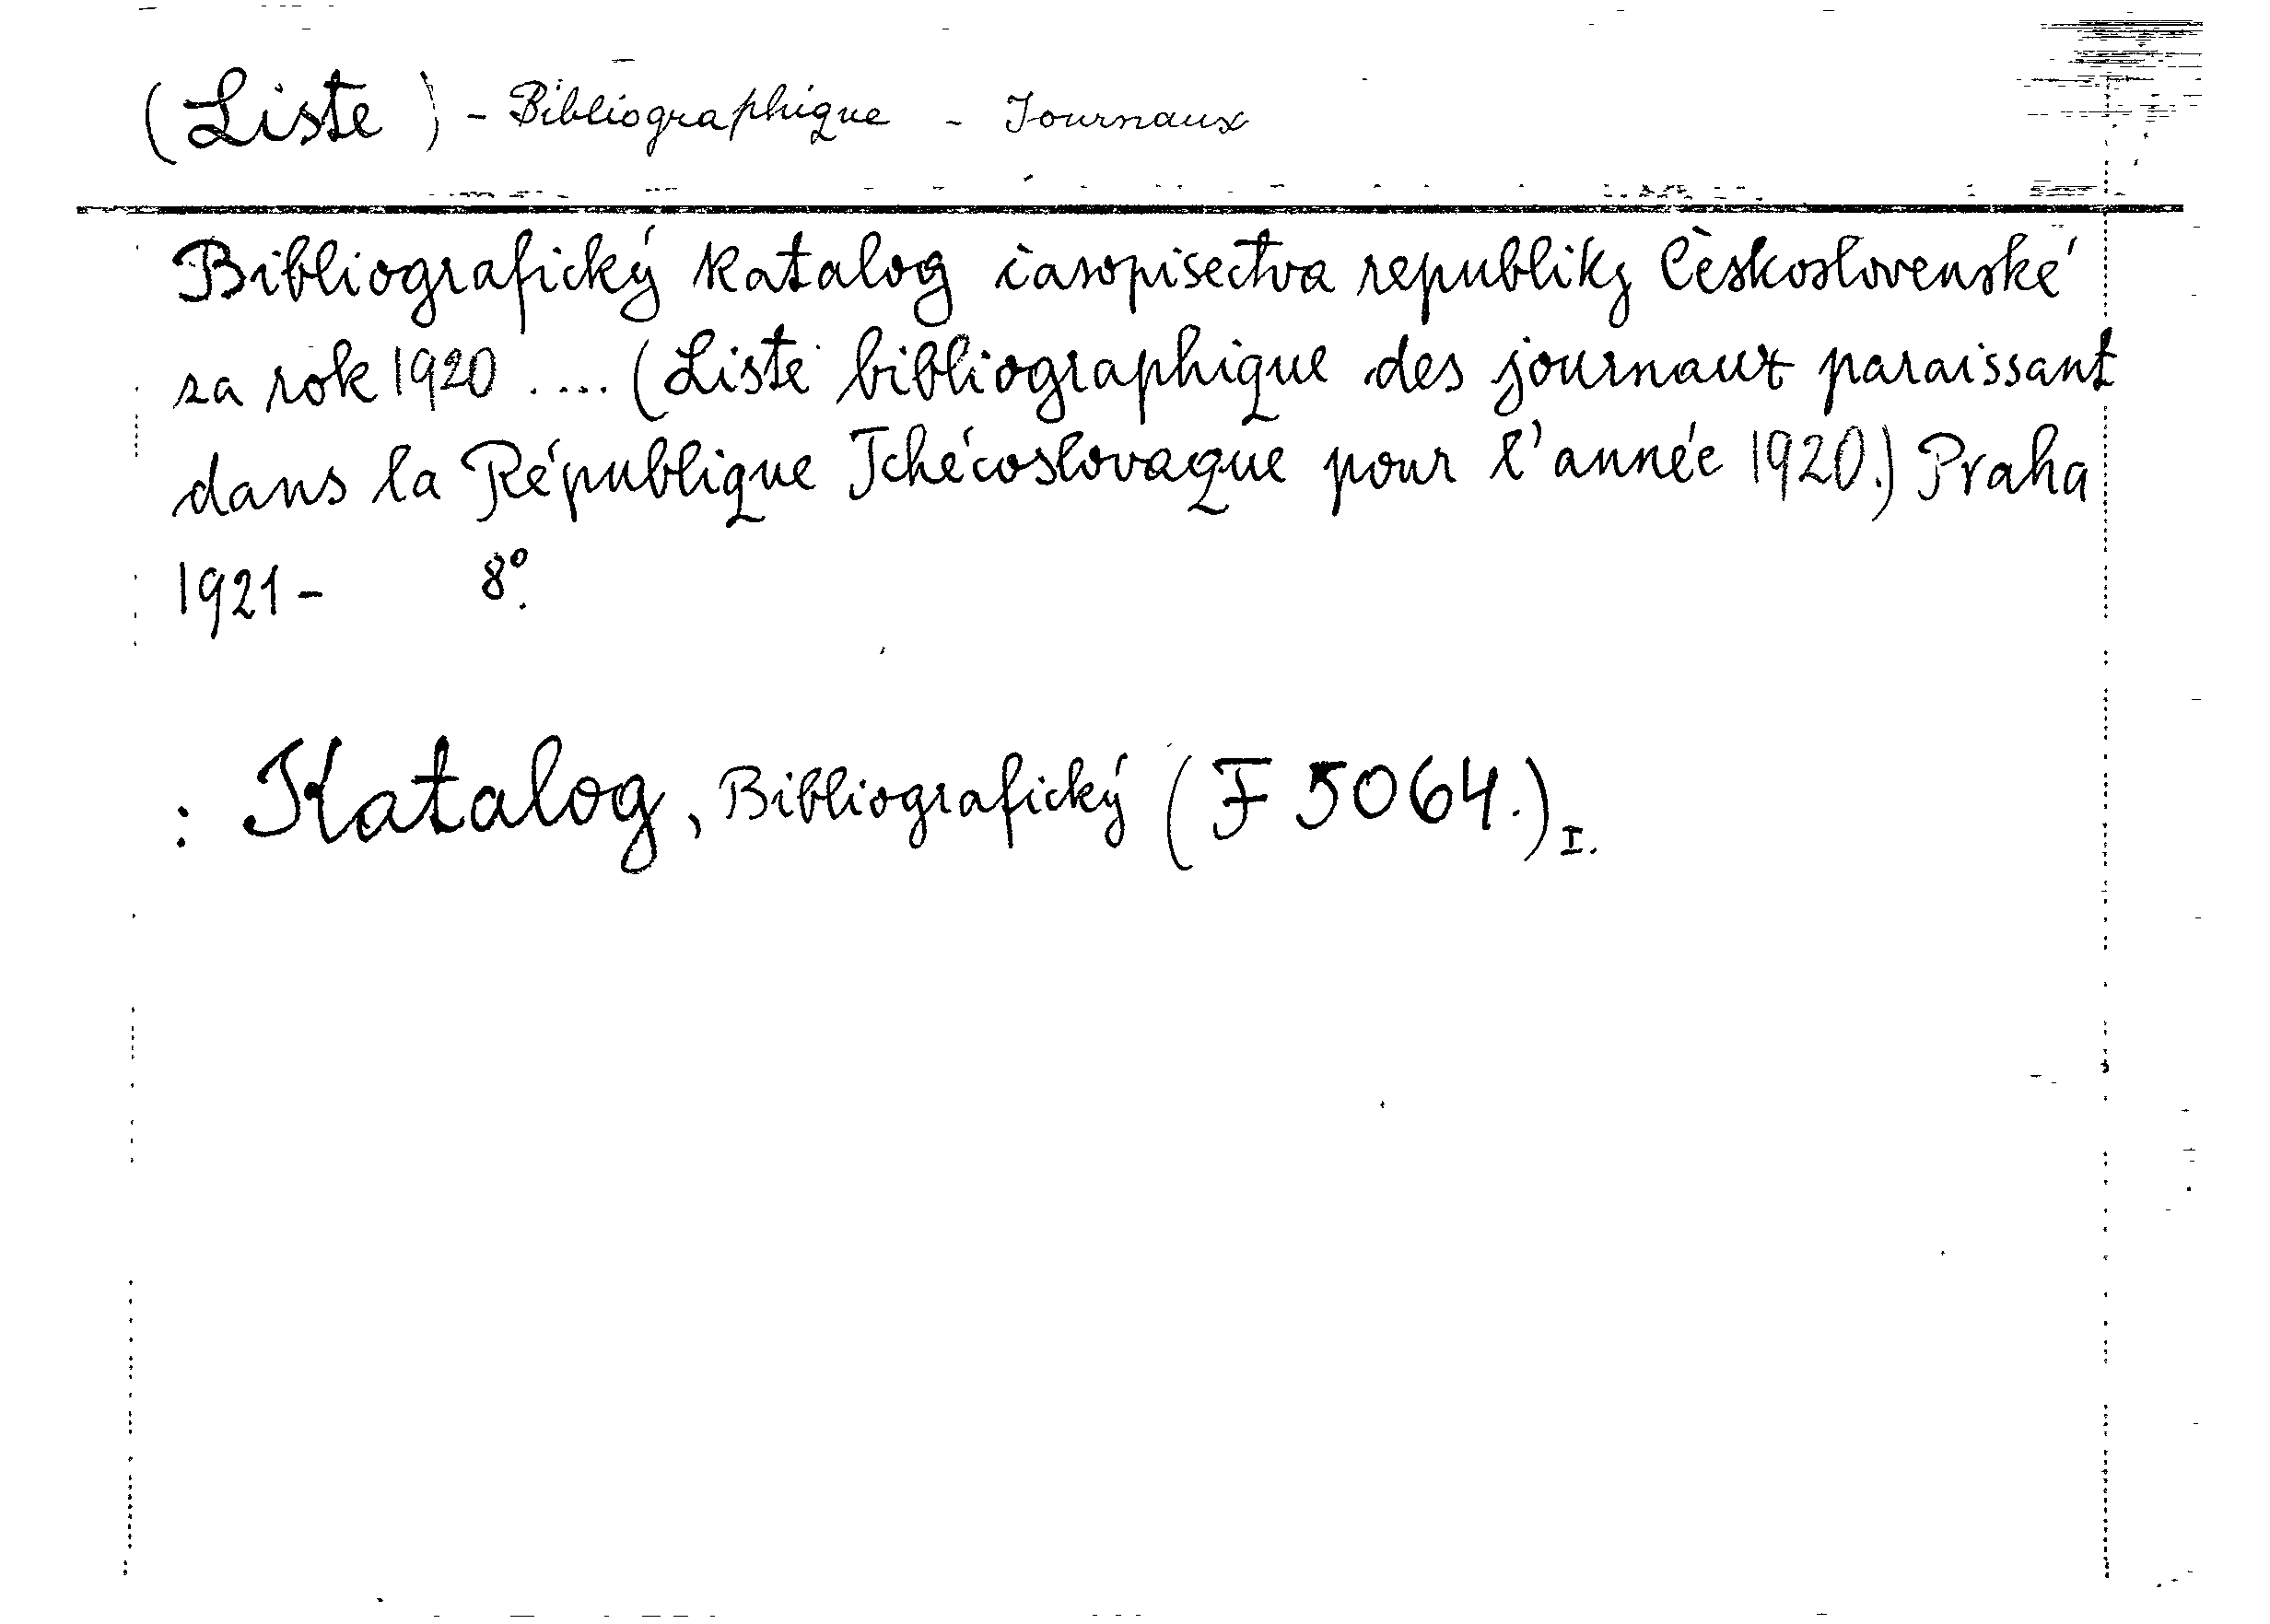 (Liste) - Bibliographique - Journaux
Bibliografický katalog časopisectva republiky Československé
za rok 1920 .... (Liste bibliographique des journaux paraissant
dans la République Tchécoslovaque pour l'année 1920.) Praha
1921- 8°.
: Katalog, Bibliografický (F 5064.) I.